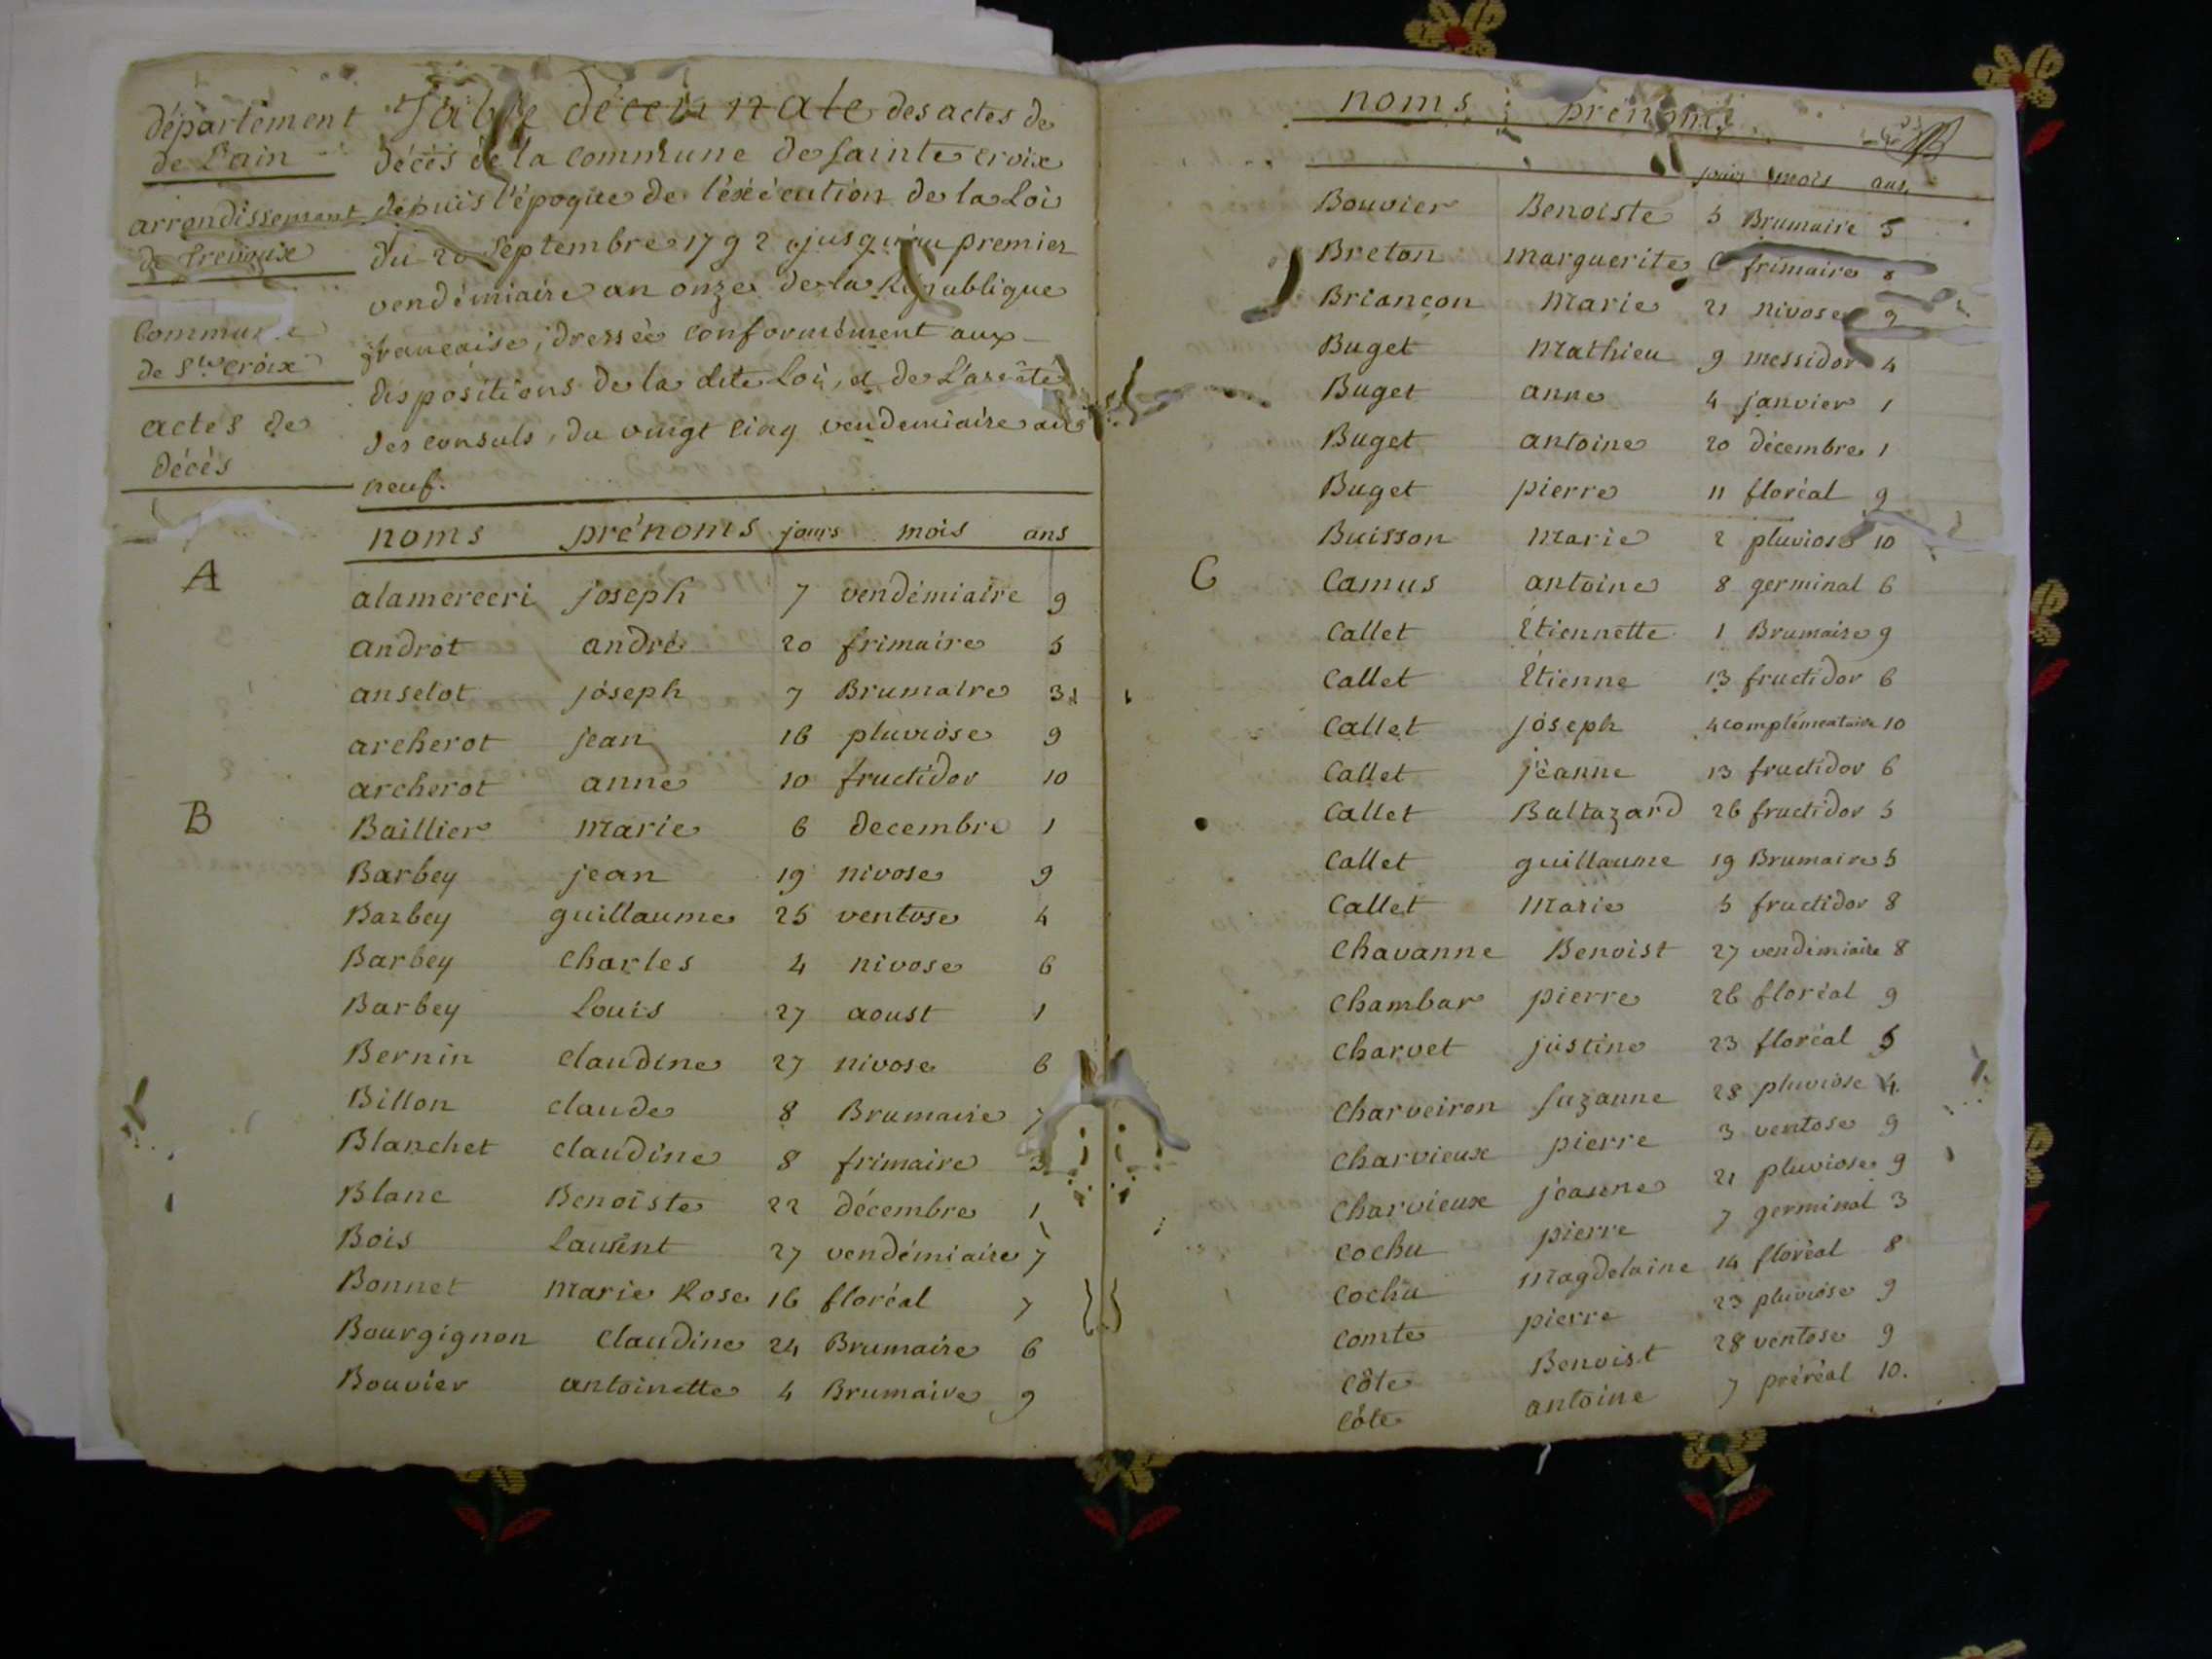 département
de L'ain
arrondissement
de Trevoux
Commune
de Ste croix
actes de
décès
Table décennale des actes de
décès de la commune de Sainte croix
depuis l'époque de l'éxécution de la Loi
du 20 Septembre 1792 jusqu'au premier
vendémiaire an onze de la République
française, dressée conformément aux
dispositions de la dite Loi, et de L'arrêté
des consuls, du vingt cinq vendemiaire an
neuf.
noms prénoms jours mois ans
A
alamerceri joseph 7 vendémiaire 9
androt andré 20 frimaire 5
anselot joseph 7 Brumaire 3
archerot jean 16 pluviose 9
archerot anne 10 fructidor 10
B
Baillier Marie 6 decembre 1
Barbey jean 19 nivose 9
Barbey guillaume 25 ventose 4
Barbey Charles 4 nivose 6
Barbey Louis 27 aoust 1
Bernin Claudine 27 nivose 6
Billon claude 8 Brumaire 7
Blanchet claudine 8 frimaire 3
Blanc Benoiste 22 décembre 1
Bois Laurent 27 vendémiaire 7
Bonnet Marie Rose 16 floréal 7
Bourgignon Claudine 24 Brumaire 6
Bouvier antoinette 4 Brumaire 9
noms prénoms
jours mois ans
Bouvier Benoiste 5 Brumaire 5
Breton Marguerite 6 frimaire 8
Briançon Marie 21 nivose 9
Buget Mathieu 9 messidor 4
Buget anne 4 janvier 1
Buget antoine 20 décembre 1
Buget pierre 11 floréal 9
Buisson Marie 2 pluviose 10
C
Camus antoine 8 germinal 6
Callet Étiennette 1 Brumaire 9
Callet Étienne 13 fructidor 6
Callet joseph 4 complémentaire 10
Callet jeanne 13 fructidor 6
Callet Baltazard 26 fructidor 5
Callet guillaume 19 Brumaire 5
Callet Marie 5 fructidor 8
Chavanne Benoist 27 vendémiaire 8
Chambar pierre 26 floréal 9
Charvet justine 23 floréal 5
Charveiron Suzanne 28 pluviose 4
Charvieux pierre 3 ventose 9
Charvieux jeanne 21 pluviose 9
Cochu pierre 7 germinal 3
Cochu Magdelaine 14 floréal 8
Comte pierre 23 pluviose 9
Côte Benoist 28 ventose 9
Côte antoine 7 préréal 10.